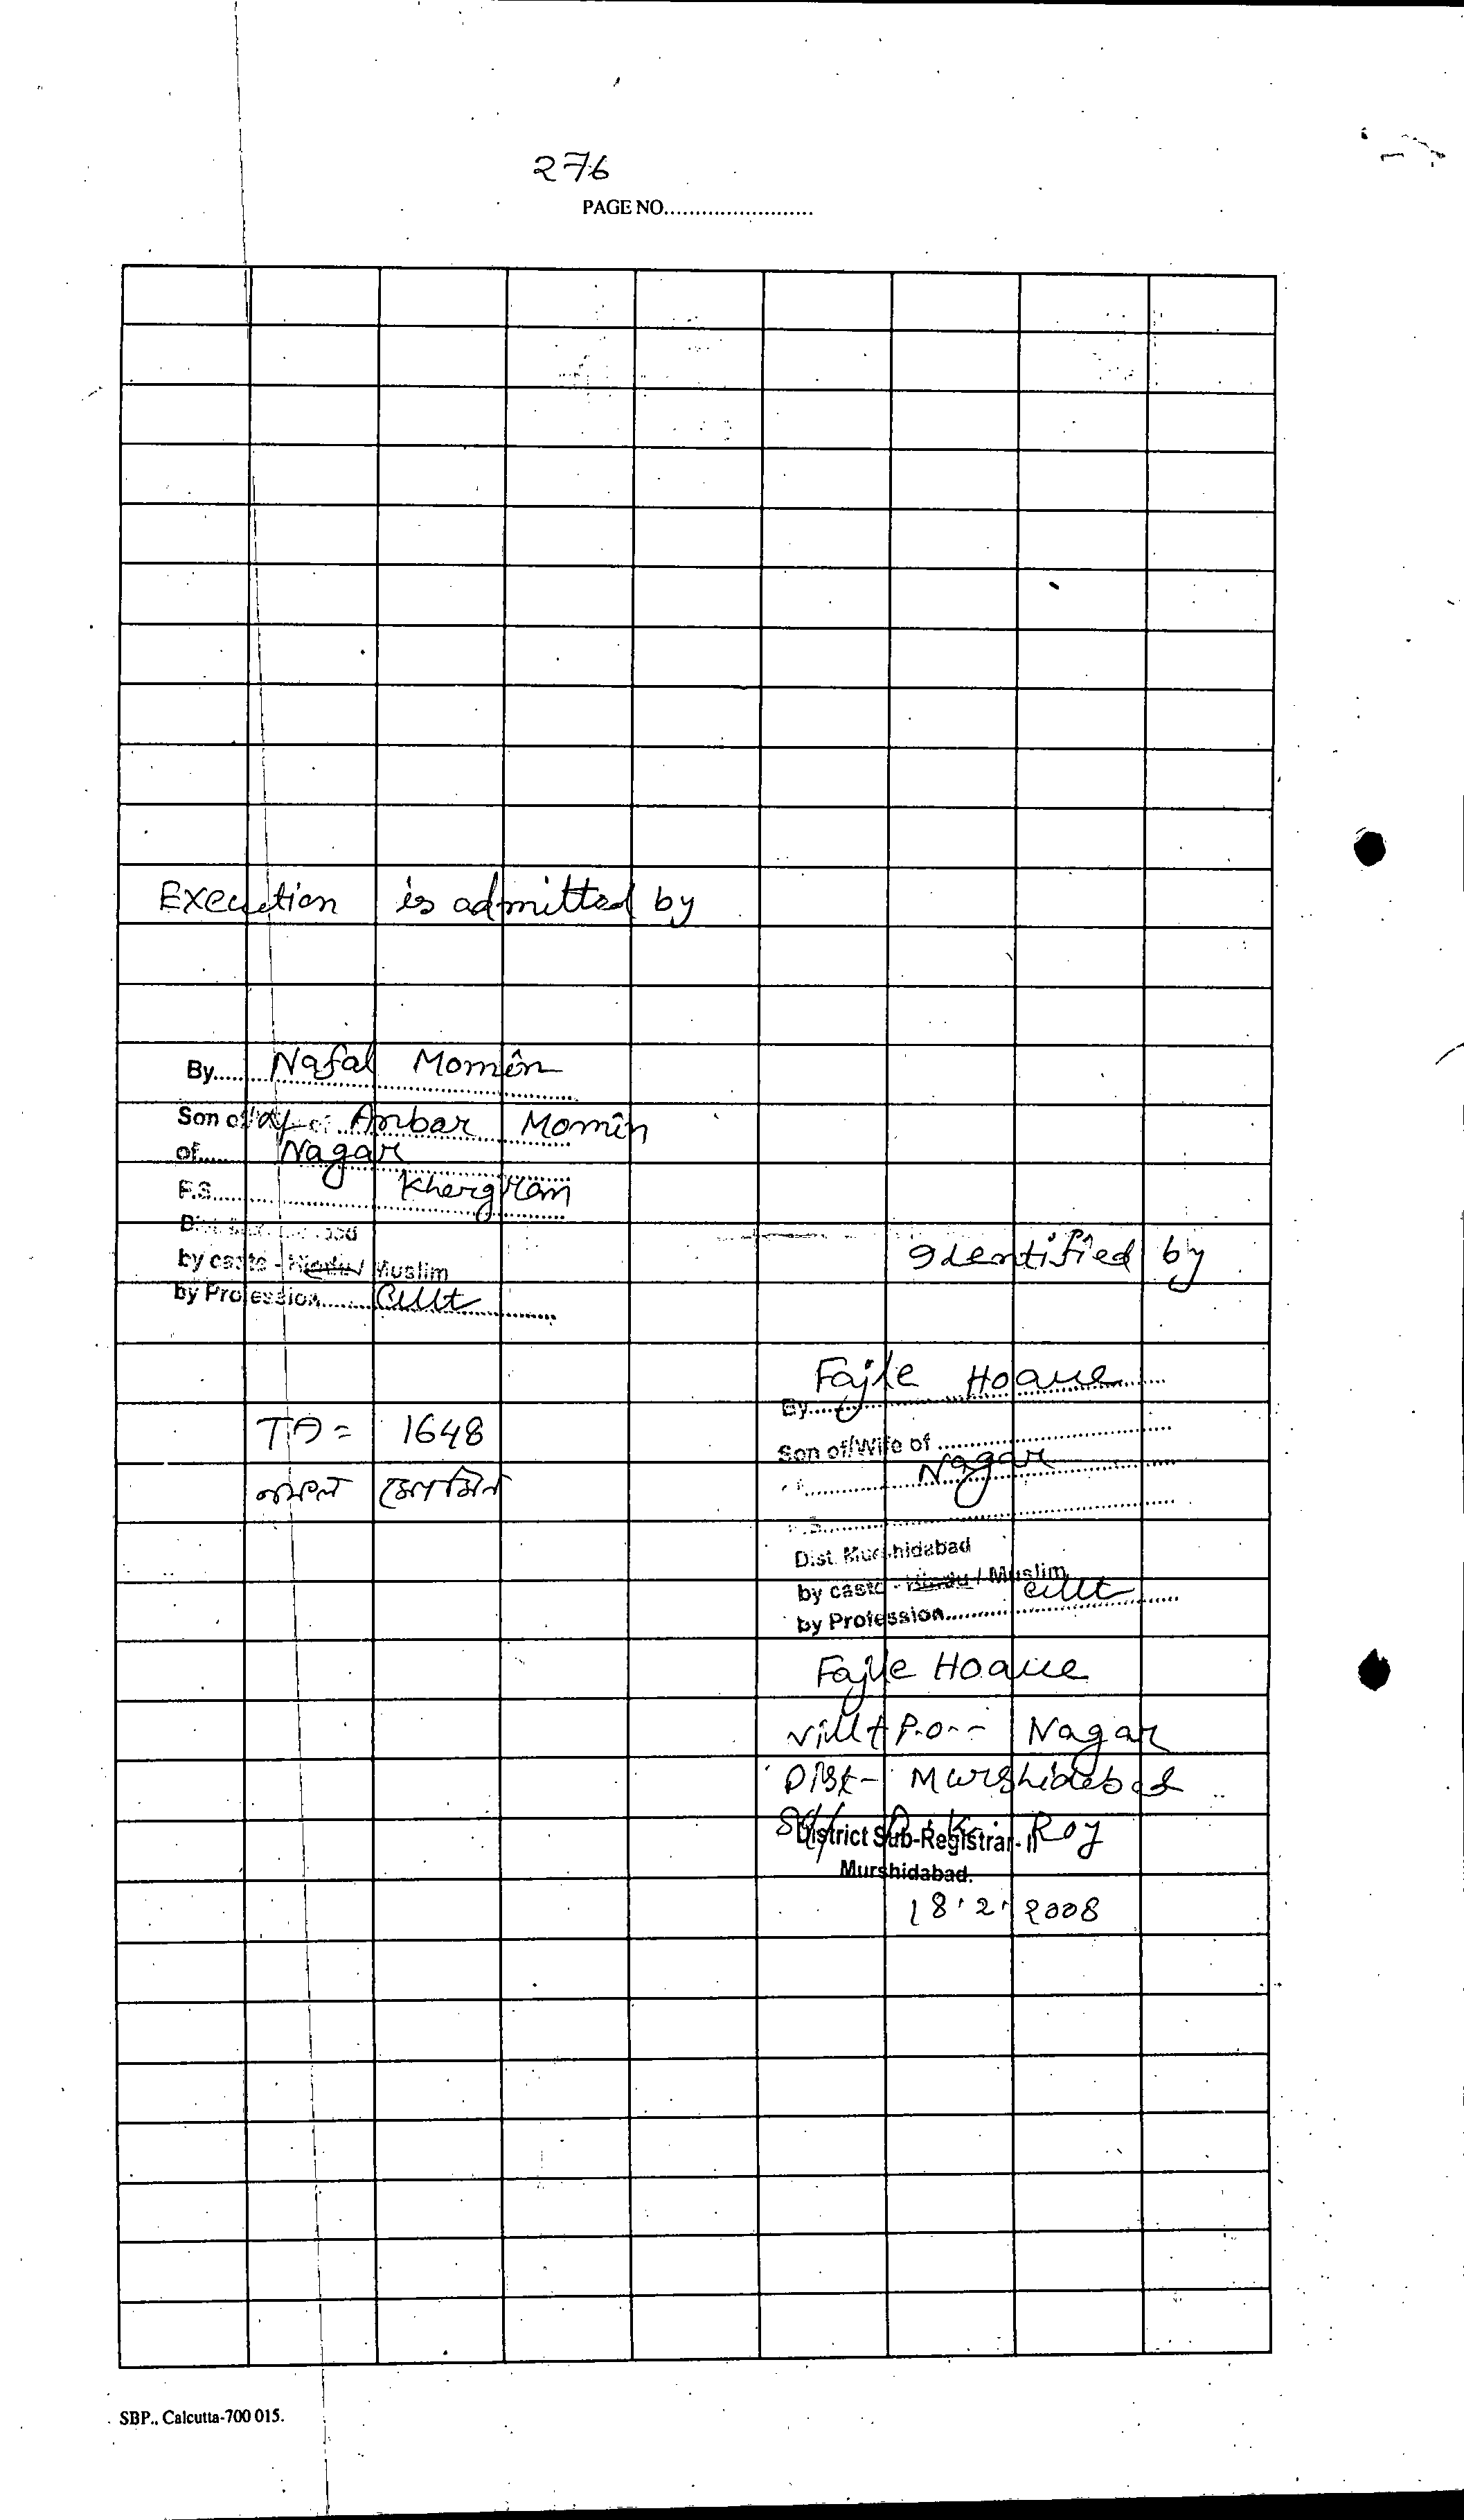 276
PAGE NO.........................
Execution is admitted by
By...... Nafal Momin
Son of Anbar Momin
of...... Nagar
P.S........ Khergram
by caste - Hindu / Muslim
by Profession......... Cult
TA = 1648
নফল মোমিন
Identified by
By...... Fajle Hoque
Son of/Wife of ..............
Nagar
Dist. Murshidabad
by caste - Hindu / Muslim
by Profession......... Cult
Fajle Hoque
Vill+P.O-- Nagar
Dist- Murshidabad
Sd/ D. K. Roy
District Sub-Registrar- II
Murshidabad.
18.2.2008
SBP., Calcutta-700 015.